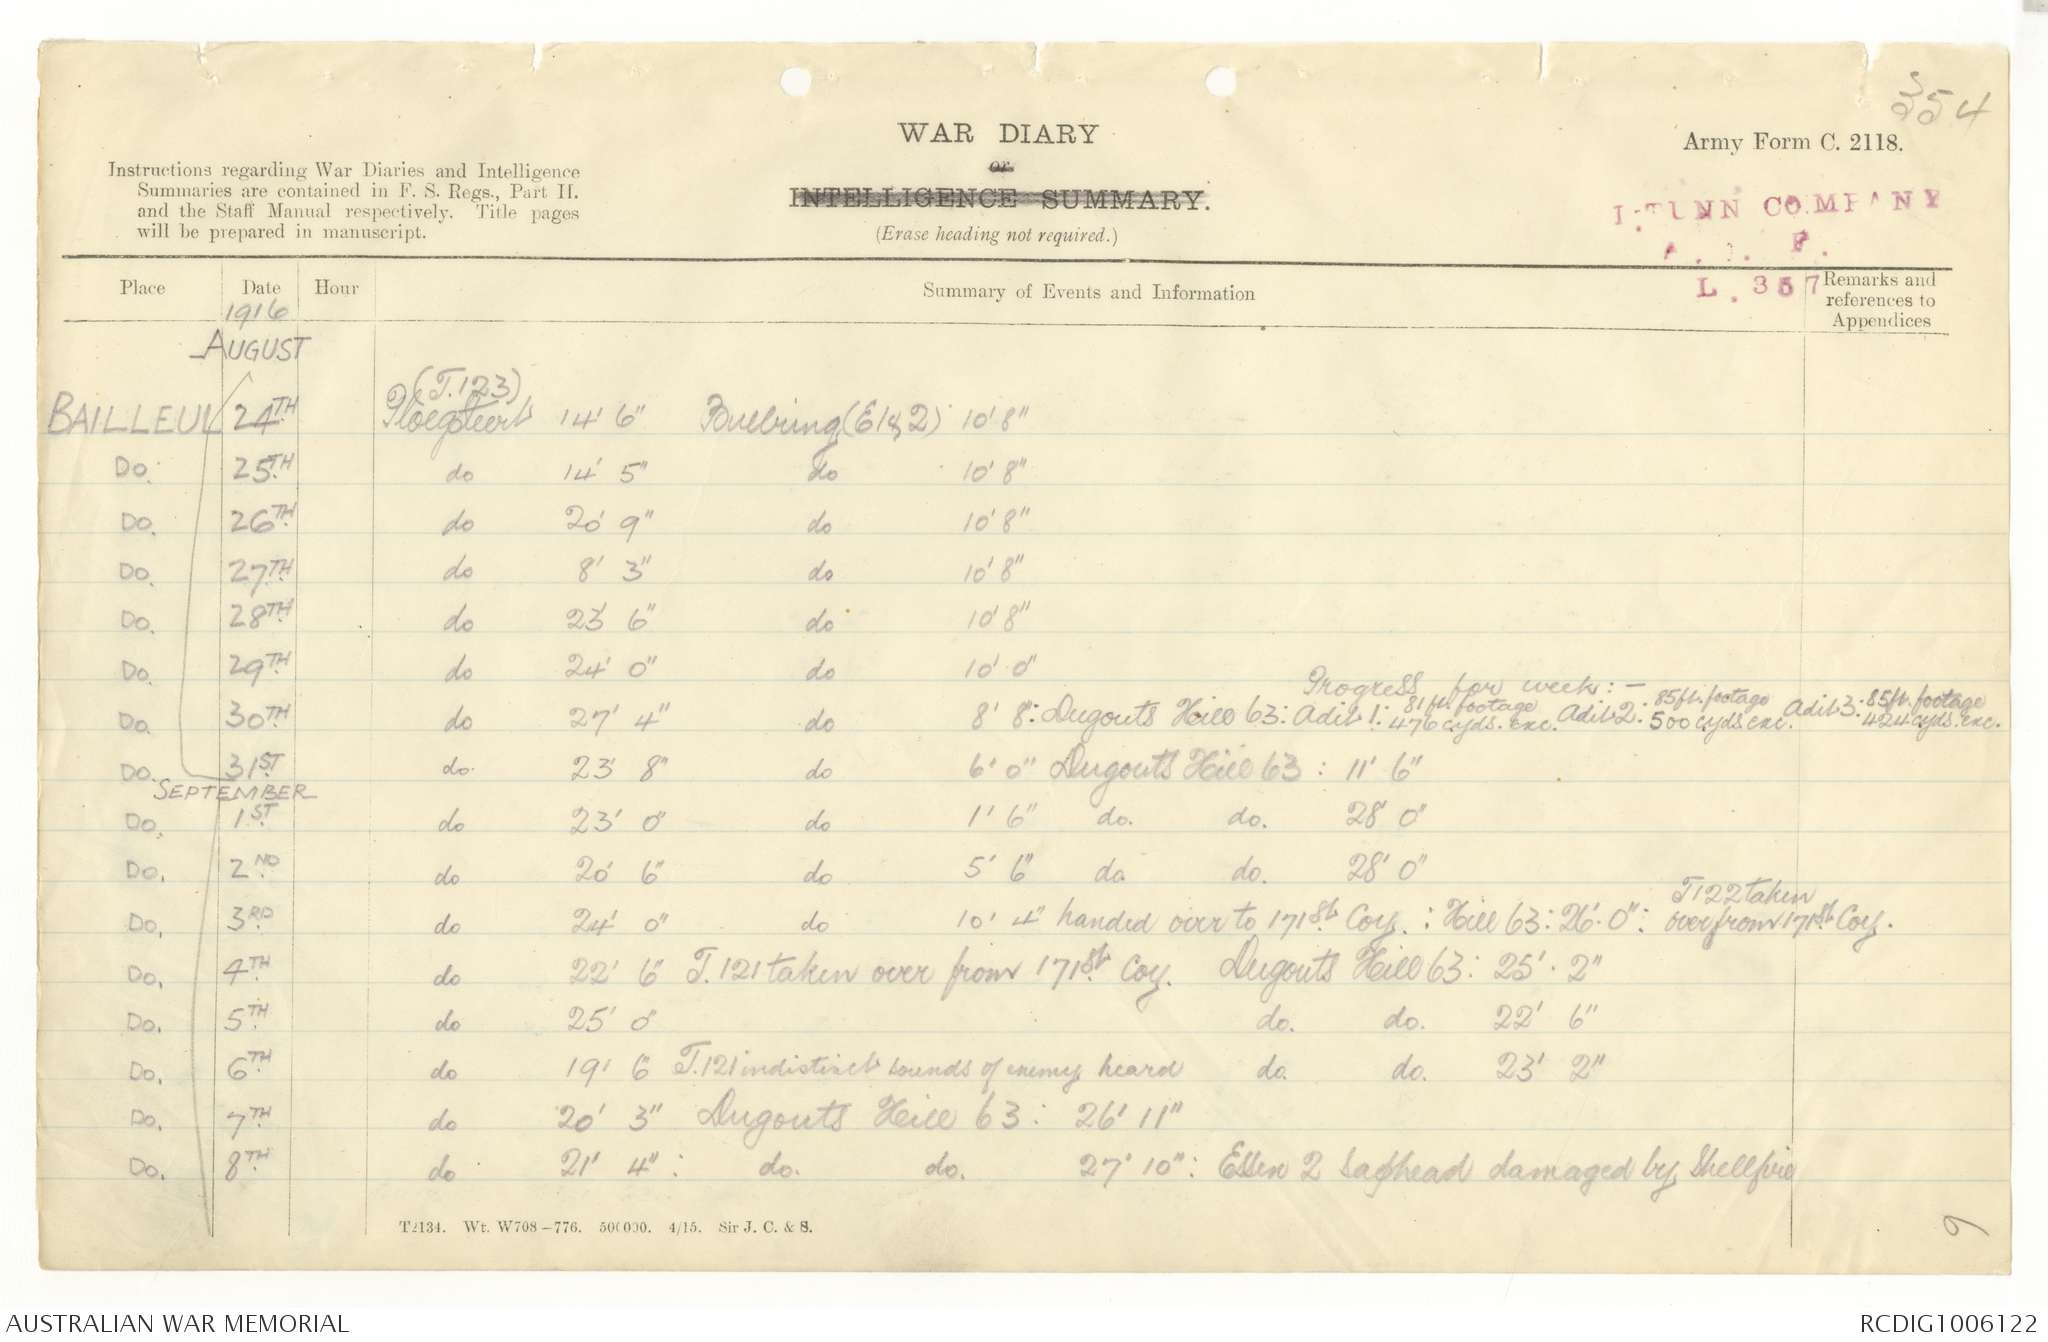 354
WAR DIARY
or
INTELLIGENCE SUMMARY.
(Erase heading not required.)
Army Form C. 2118.
Instructions regarding War Diaries and Intelligence
Summaries are contained in F. S. Regs., Part II.
and the Staff Manual respectively. Title pages
will be prepared in manuscript.
1. TUNN COMPANY
A. I. F.
L. 357
Place Date Hour Summary of Events and Information Remarks and references to Appendices
1916
AUGUST
(T.123)
BAILLEUL 24TH Ploegsteert 14' 6" Buebring (E1 & 2) 10' 8"
Do. 25TH do 14' 5" do 10' 8"
Do. 26TH do 20' 9" do 10' 8"
Do. 27TH do 8' 3" do 10' 8"
Do. 28TH do 23' 6" do 10' 8"
Do. 29TH do 24' 0" do 10' 0"
Progress for week: —
Do. 30TH do 27' 4" do 8' 8": Dugouts Hill 63: Adit 1: 81 ft. footage 476 cyds. exc. Adit 2. 85 ft. footage 500 cyds. exc. Adit 3. 85 ft. footage 424 cyds. exc.
Do. 31ST do 23' 8" do 6' 0" Dugouts Hill 63: 11' 6"
SEPTEMBER
Do. 1ST do 23' 0" do 1' 6" do. do. 28' 0"
Do. 2ND do 20' 6" do 5' 6" do do. 28' 0"
Do. 3RD do 24' 0" do 10' 4" handed over to 171st Coy. : Hill 63: 26'. 0": T122 taken over from 171st Coy.
Do. 4TH do 22' 6" T.121 taken over from 171st Coy. Dugouts Hill 63: 25'. 2"
Do. 5TH do 25' 0" do. do. 22' 6"
Do. 6TH do 19' 6" T.121 indistinct sounds of enemy heard do. do. 23' 2"
Do. 7TH do 20' 3" Dugouts Hill 63: 26' 11"
Do. 8TH do 21' 4": do. do. 27' 10": Essen 2 saphead damaged by shellfire
T2134. Wt. W708—776. 500000. 4/15. Sir J. C. & S.
9
AUSTRALIAN WAR MEMORIAL
RCDIG1006122